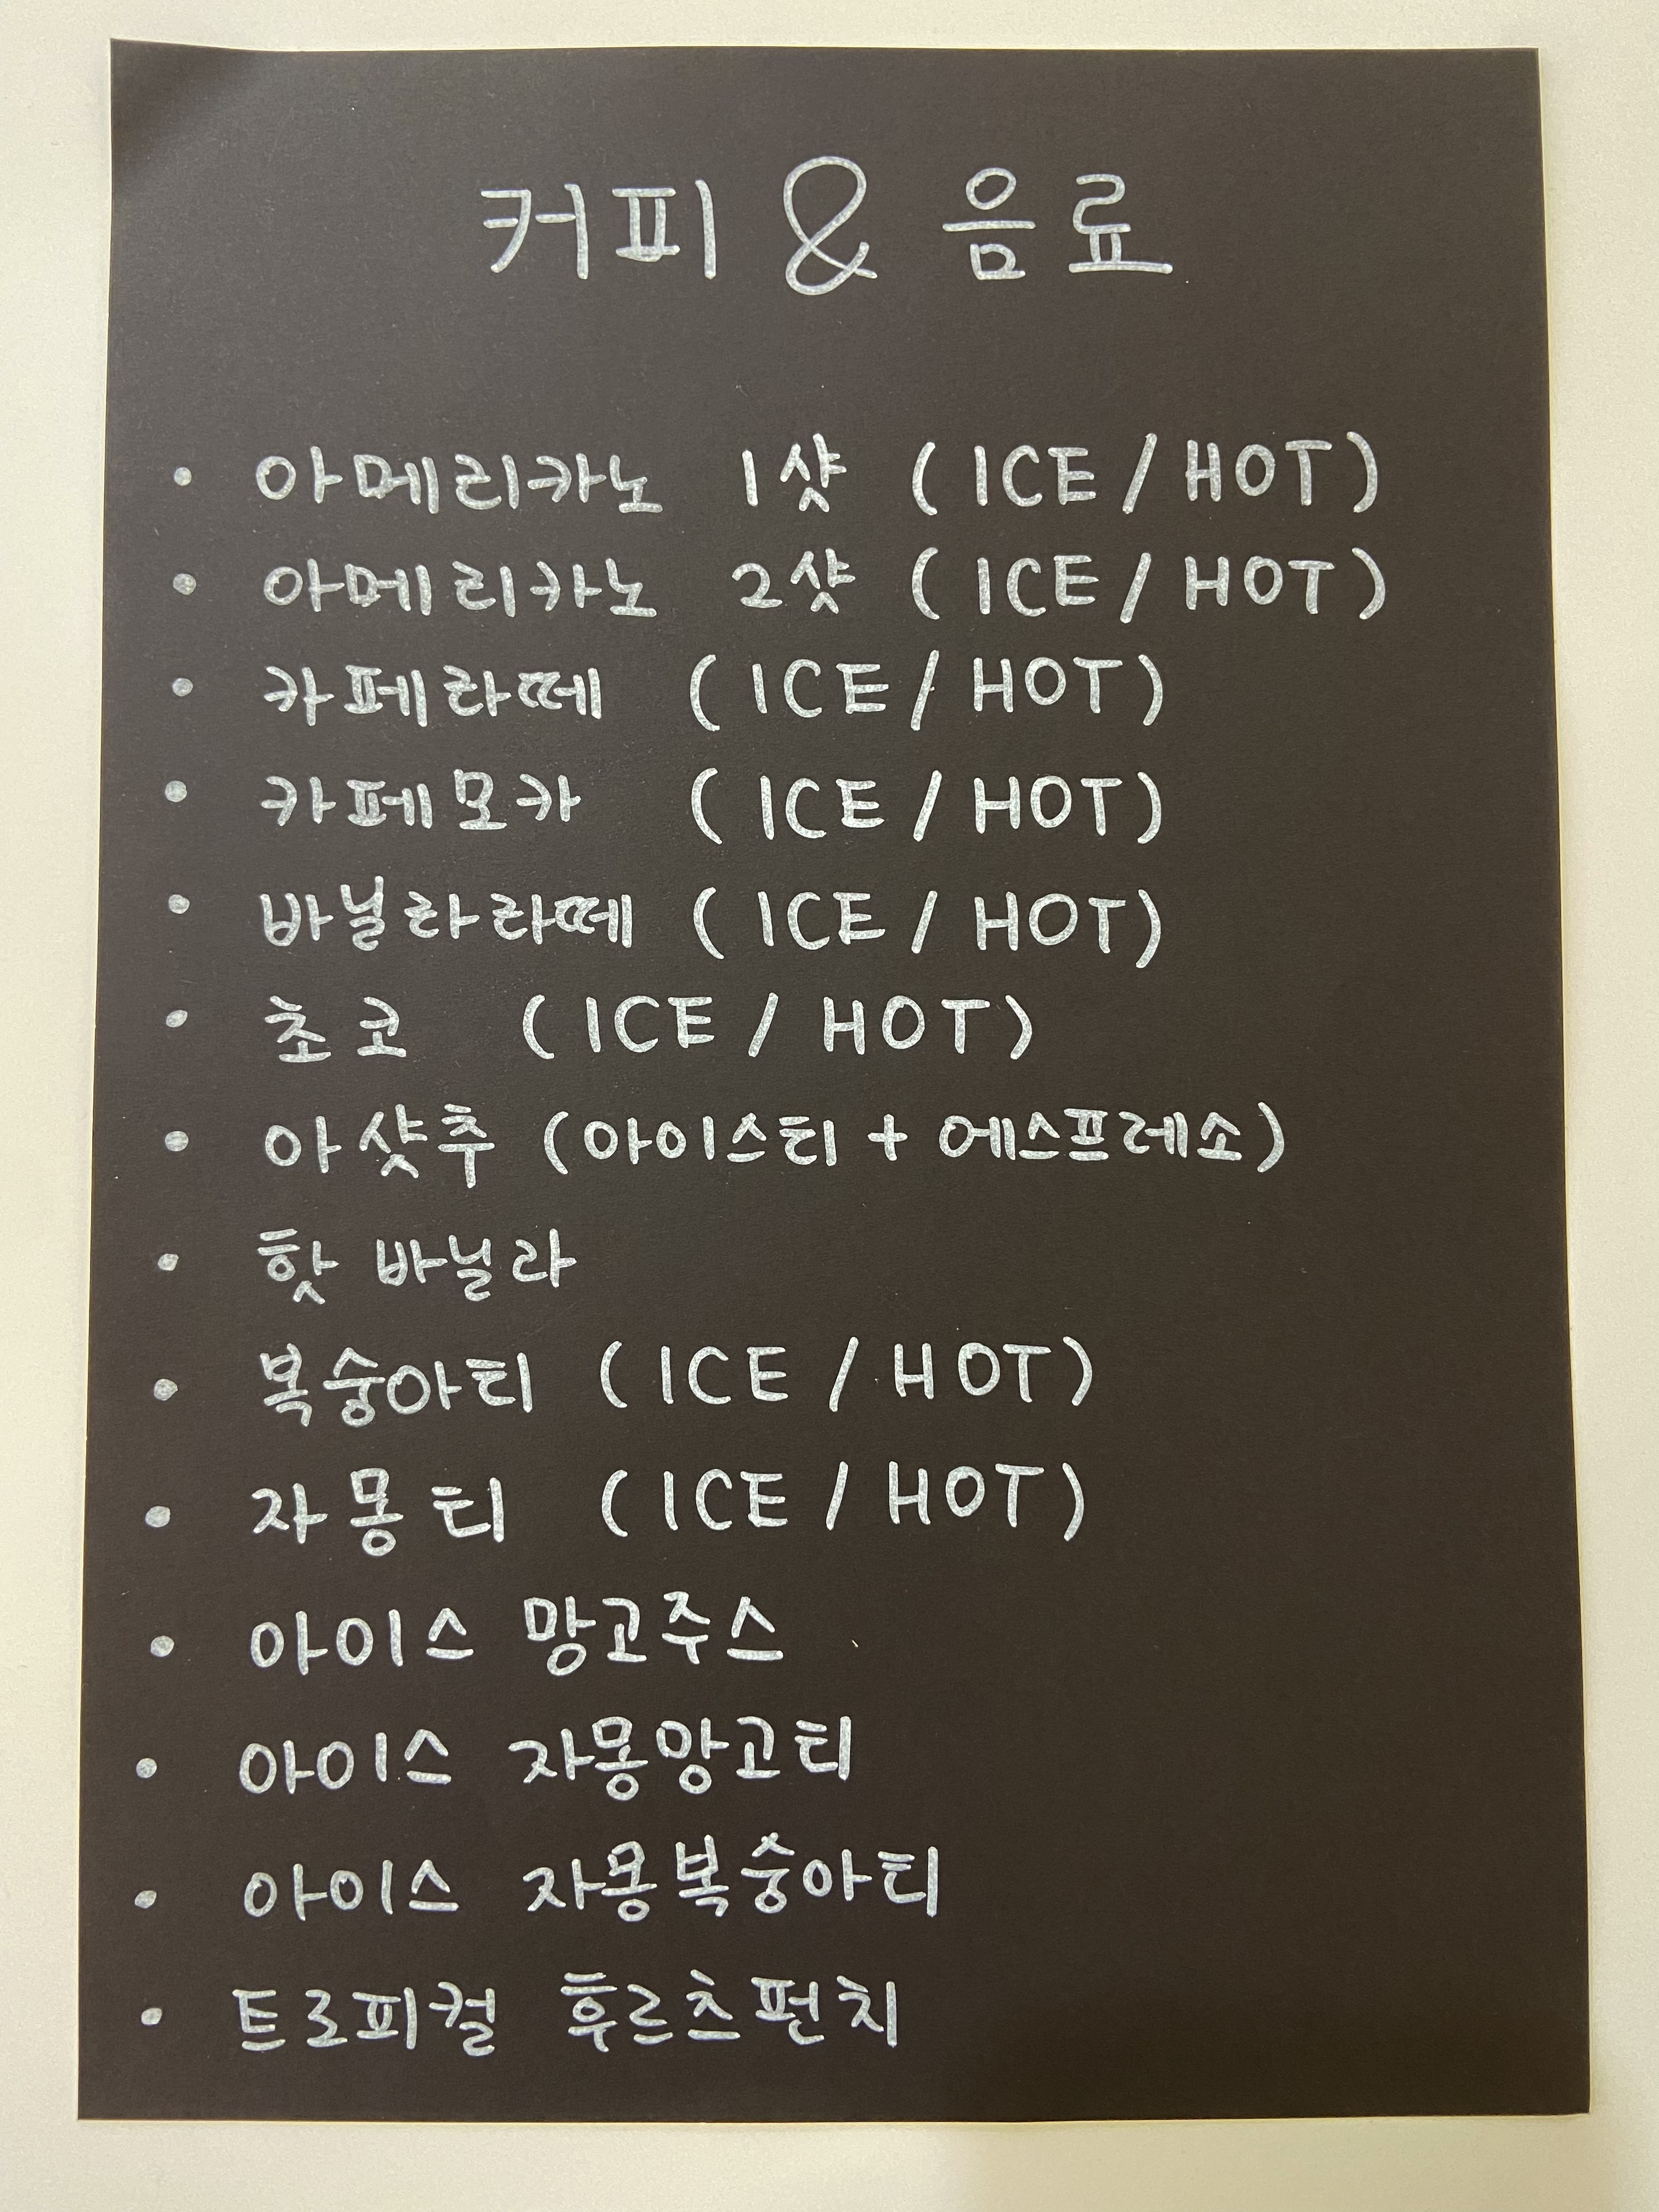 커피 & 음료
• 아메리카노 1샷 (ICE / HOT)
• 아메리카노 2샷 (ICE / HOT)
• 카페라떼 (ICE / HOT)
• 카페모카 (ICE / HOT)
• 바닐라라떼 (ICE / HOT)
• 초코 (ICE / HOT)
• 아샷추 (아이스티 + 에스프레소)
• 핫 바닐라
• 복숭아티 (ICE / HOT)
• 자몽티 (ICE / HOT)
• 아이스 망고주스
• 아이스 자몽망고티
• 아이스 자몽복숭아티
• 트로피컬 후르츠펀치